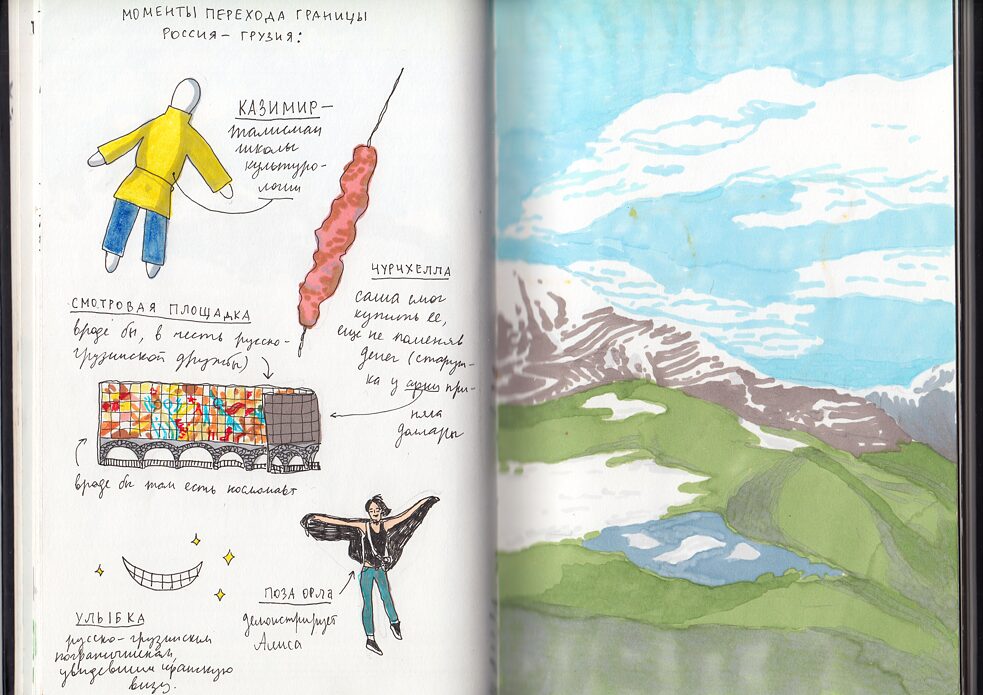 МОМЕНТЫ ПЕРЕХОДА ГРАНИЦЫ
РОССИЯ – ГРУЗИЯ:
КАЗИМИР –
талисман
школы
культуро-
логии
ЧУРЧХЕЛЛА
саша смог
купить её,
ещё не поменяв
денег (старуш-
ка у арки при-
няла
доллары
СМОТРОВАЯ ПЛОЩАДКА
вроде бы, в честь русско-
грузинской дружбы)
вроде бы там есть космонавт
ПОЗА ОРЛА
демонстрирует
Алиса
УЛЫБКА
русско-грузинским
пограничникам,
увидевшим иранскую
визу.